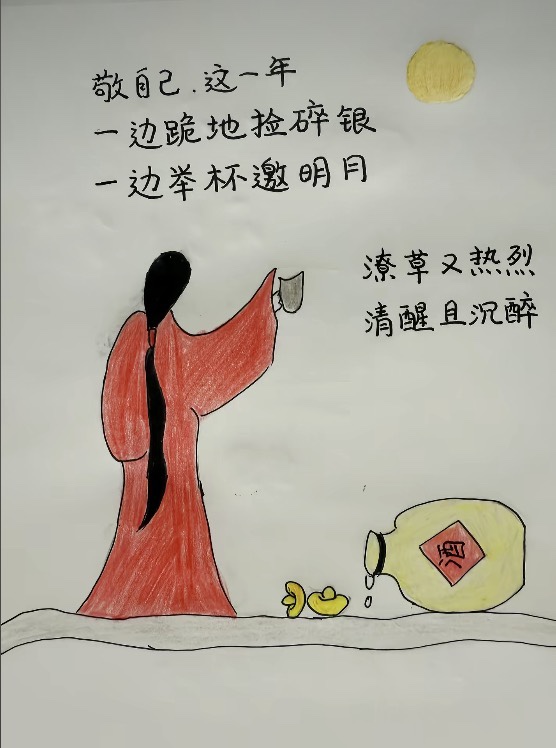 敬自己.这一年
一边跪地捡碎银
一边举杯邀明月
潦草又热烈
清醒且沉醉
酒